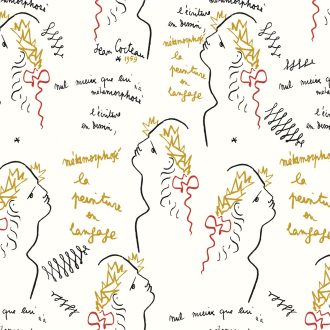 métamorphosé
l'écriture
en dessin,
Jean Cocteau
* 1959
métamorphosé
la
peinture
en
langage
nul mieux que lui n'a
métamorphosé
l'écriture
en dessin,
métamorphosé
la
peinture
en
langage
métamorphosé
la
peinture
en
langage
nul mieux que lui n'a
nul mieux que lui n'a